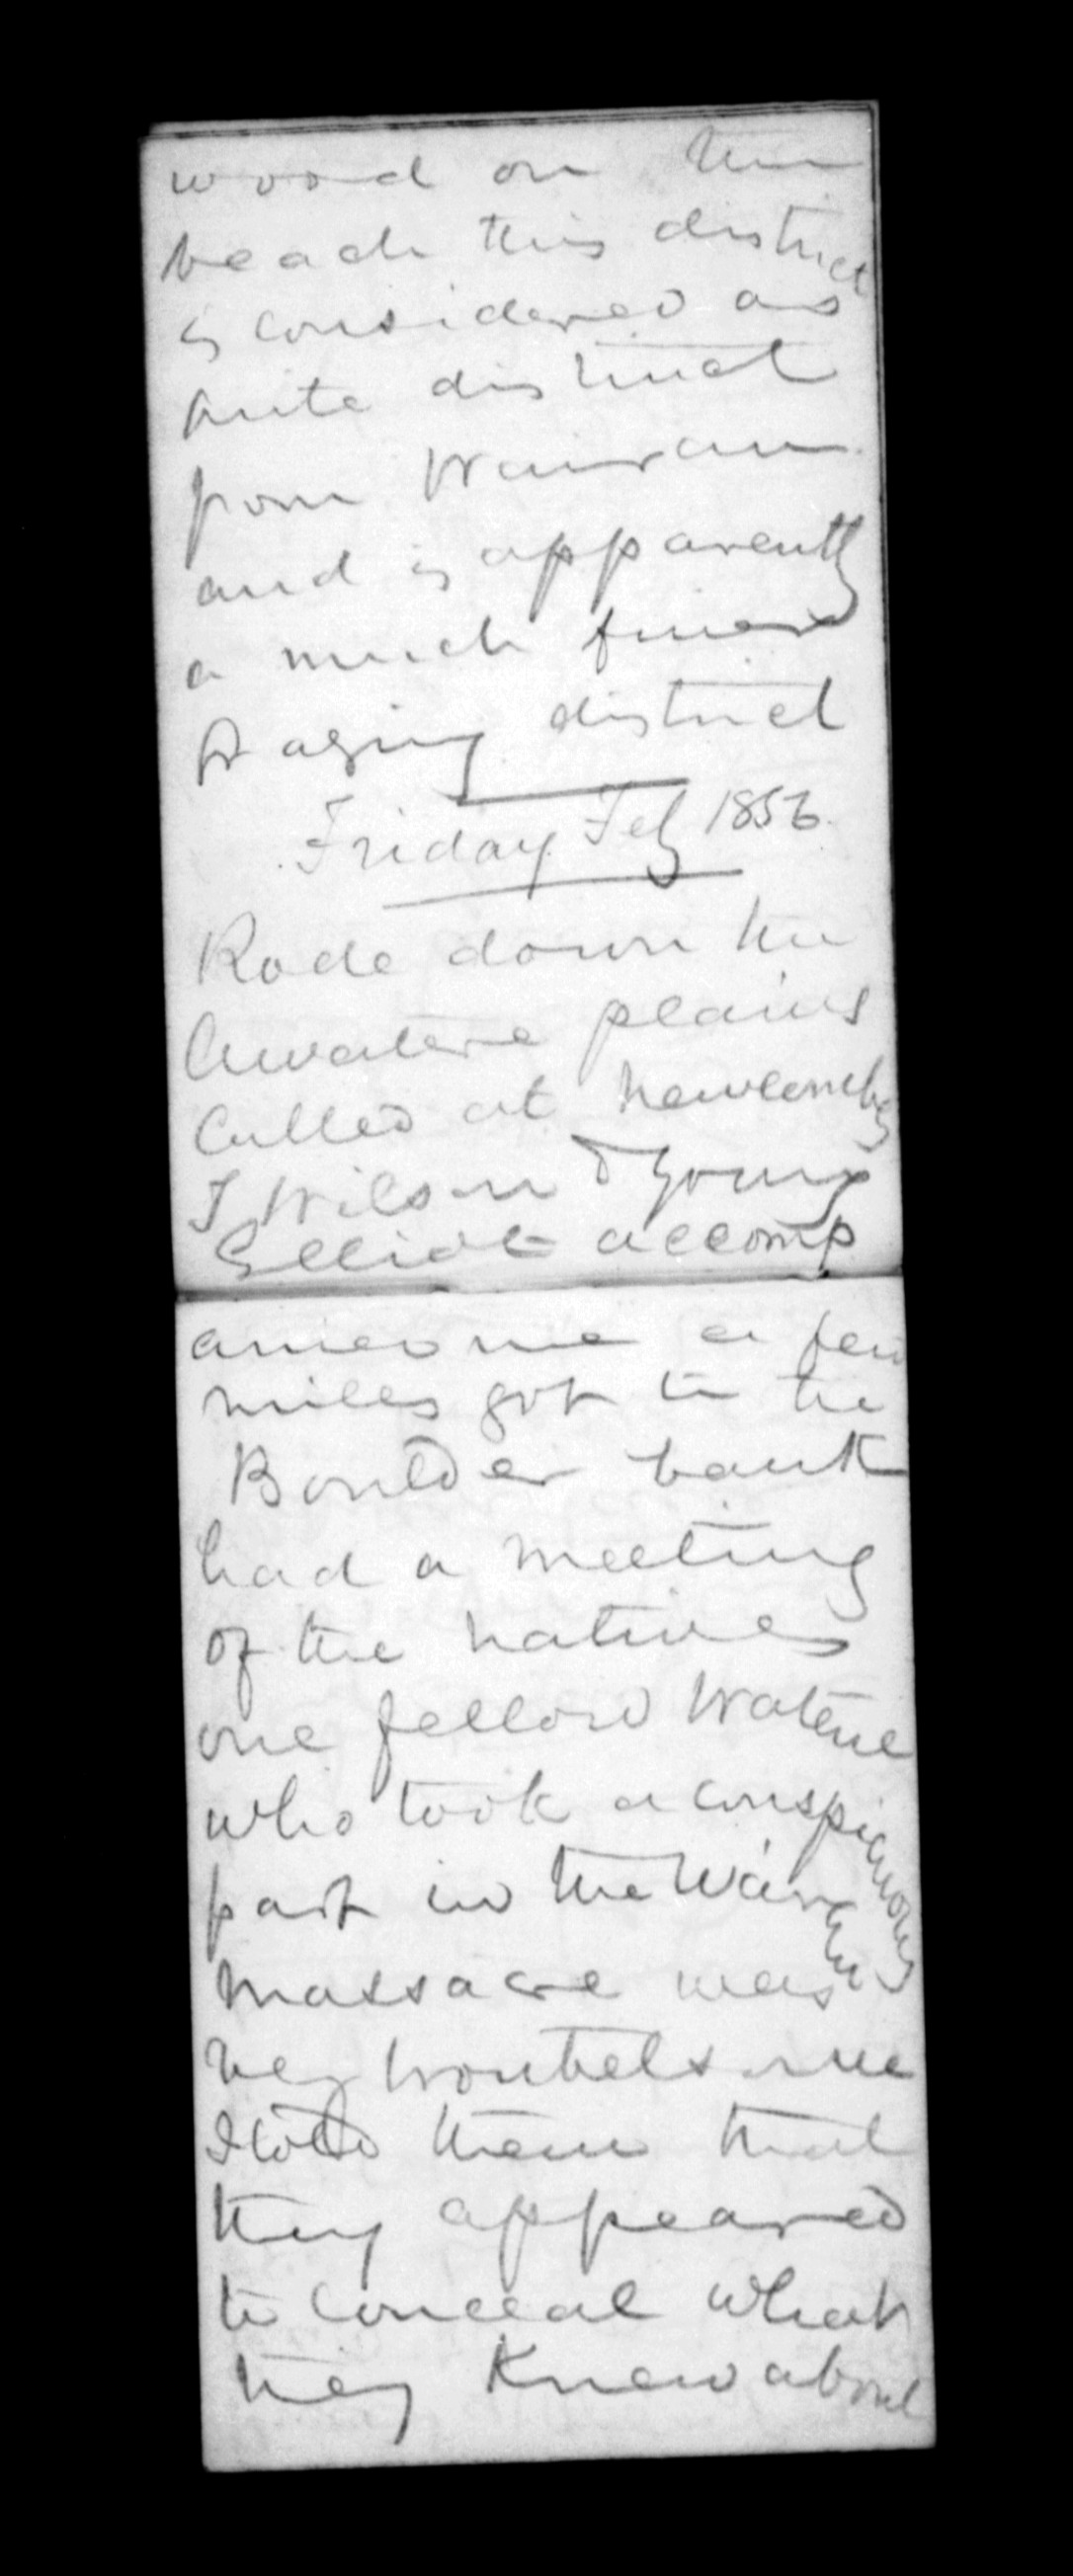 wood on the
beach this district
is considered as
quite distinct
from Wairau
and is apparently
a much finer
grazing district
Friday Feby 1856.
Rode down the
Awatere plains
Called at Newcombes
J Wilson & Young
Elliot accomp
anied me a few
miles got to the
Boulder bank
had a meeting
of the natives
one fellow Watene
who took a conspicuous
part in the Wairau
Massacre was
very troublesome
I told them that
they appeared
to conceal what
they Knew about